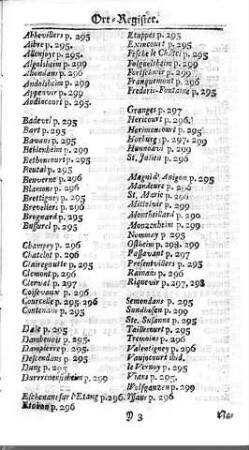 Ort-Register.
Abbevillers p. 295
Aibre p. 295.
Allenjoye p. 295.
Algolsheim p. 299
Allondans p. 296
Andolsheim p. 299
Appenvir p. 299
Audincourt p. 295.
Badevel p. 295
Bart p. 295
Bavans p. 295
Beblenheim p. 299
Bethoncourt p. 295
Beutal p. 295
Beuverne p. 296
Blamont p. 296
Brettigney p. 295
Brevelier p. 296
Brognard p. 295
Bussurel p. 295
Champey p. 296
Chatelot p. 296
Clairegoutte p. 295
Clemont p. 296
Clerval p. 297
Coisevaux p. 296
Courcelle p. 295. 296
Coutenans p. 295
Dale p. 295
Dambenois p. 295
Dampierre p. 295
Descendans p. 295
Dung p. 295
Durrenensheim p. 299
Eschenans sur l'Etang p. 296
Etobon p. 296
Etuppes p. 295
Exincourt p. 295
Fesche le Chastel p. 295
Folguelsheim p. 299
Fortschwir p. 299
Franquemont p. 296
Frederic-Fontaine p. 295
Granges p. 297
Hericourt p. 296.
Herimoncourt p. 295
Horburg p. 297. 299
Hunnovir p. 299
St. Julien p. 296
Magni d' Anigon p. 295
Mandeure p. 296
St. Marie p. 296
Mittelvir p. 299
Montbeillard p. 290
Munzenheim p. 299
Nommay p. 295
Ostheim p. 298. 299
Passavant p. 297
Presentvillers p. 295
Rainans p. 296
Riquevir p. 297. 298
Semondans p. 295
Sundhofen p. 299
Ste. Susanne p. 295
Taillecourt p. 295
Tremoins p. 296
Valentigney p. 296
Vaujocourt ibid.
le Vernoy p. 295
Vians p. 295.
Wolfganzen p. 299
Yssans p. 296
D 3